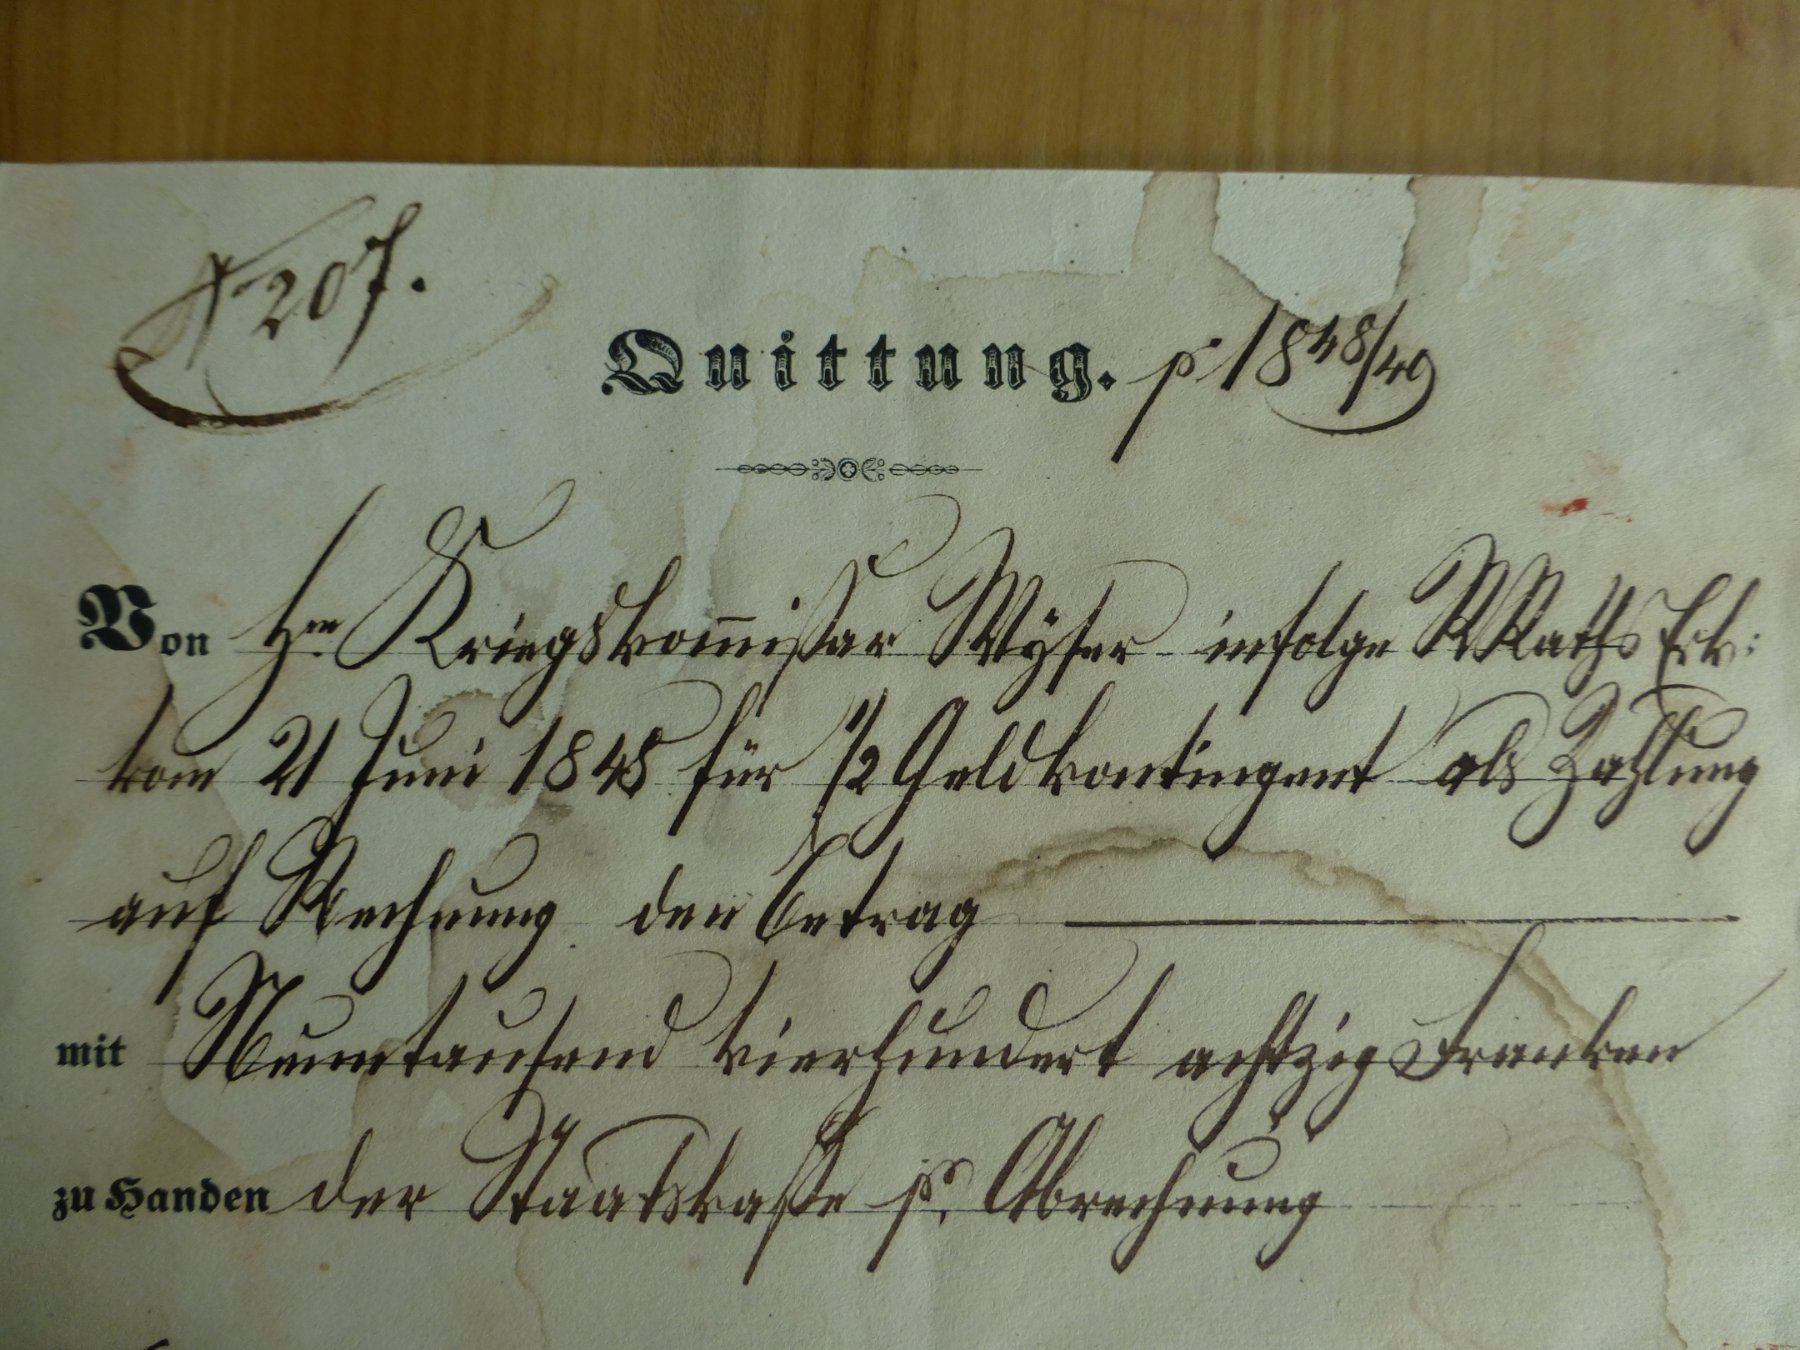 N 207.
Quittung. p. 1848/49
Von Hrn Kriegskommissar Wyser infolge RRaths Erk:
vom 21 Juni 1848 für 1/2 Geldkontingent als Zahlung
auf Rechnung den Betrag
mit Neuntausend vierhundert achtzig Franken
zu Handen der Staatskasse pr. Abrechnung